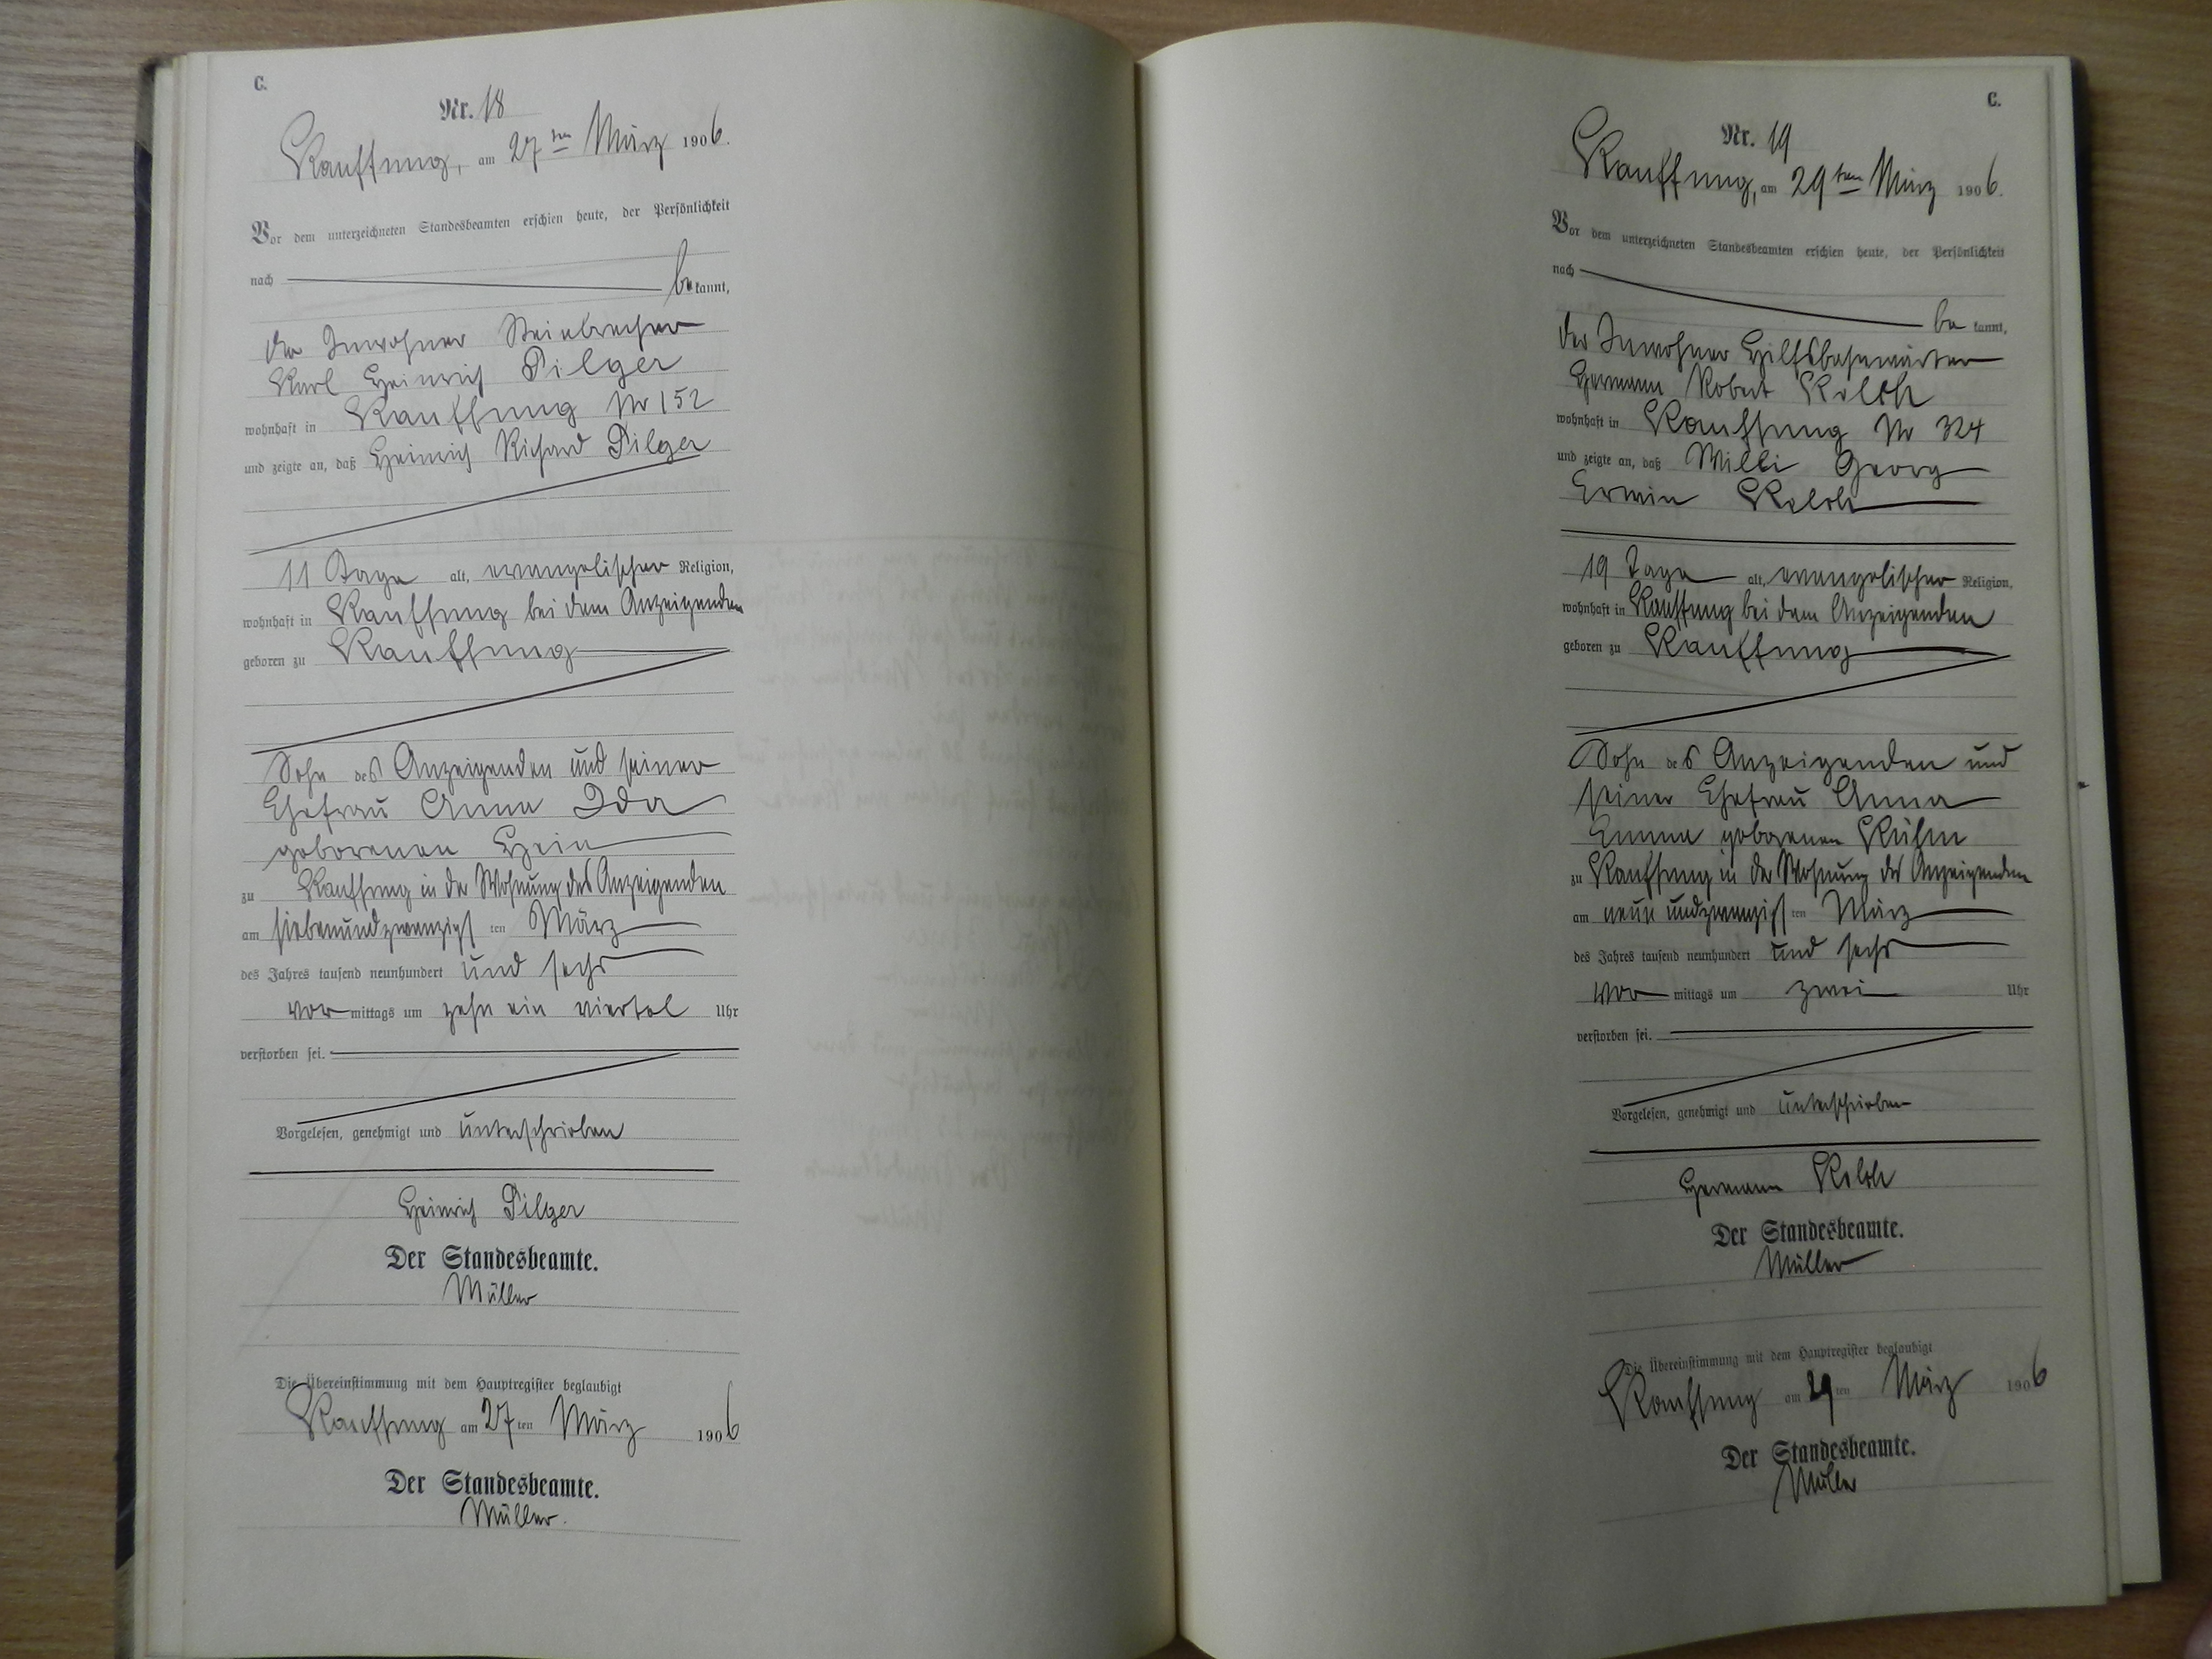 C.
Nr. 18
Kauffung, am 27ten März 1906.
Vor dem unterzeichneten Standesbeamten erschien heute, der Persönlichkeit
nach be kannt,
der Inwohner Steinbrecher
Karl Heinrich Pilger
wohnhaft in Kauffung Nr 152
und zeigte an, daß Heinrich Richard Pilger
11 Tage alt, evangelischer Religion,
wohnhaft in Kauffung bei dem Anzeigenden
geboren zu Kauffung
Sohn des Anzeigenden und seiner
Ehefrau Anna Ida
geborenen Hein
zu Kauffung in der Wohnung des Anzeigenden
am siebenundzwanzigsten März
des Jahres tausend neunhundert und sechs
vor mittags um zehn ein viertel Uhr
verstorben sei.
Vorgelesen, genehmigt und unterschrieben
Heinrich Pilger
Der Standesbeamte.
Müller
Die Übereinstimmung mit dem Hauptregister beglaubigt
Kauffung am 27ten März 1906
Der Standesbeamte.
Müller.
C.
Nr. 19
Kauffung, am 29ten März 1906.
Vor dem unterzeichneten Standesbeamten erschien heute, der Persönlichkeit
nach be kannt,
der Inwohner Hilfsbahnwärter
Hermann Robert
wohnhaft in Kauffung Nr 324
und zeigte an, daß Willi Georg
Erwin
19 Tage alt, evangelischer Religion,
wohnhaft in Kauffung bei dem Anzeigenden
geboren zu Kauffung
Sohn des Anzeigenden und
seiner Ehefrau Anna
Emma geborenen Kühn
zu Kauffung in der Wohnung des Anzeigenden
am neun undzwanzigsten März
des Jahres tausend neunhundert und sechs
vor mittags um zwei Uhr
verstorben sei.
Vorgelesen, genehmigt und unterschrieben
Hermann
Der Standesbeamte.
Müller
Die Übereinstimmung mit dem Hauptregister beglaubigt
Kauffung am 29ten März 1906
Der Standesbeamte.
Müller